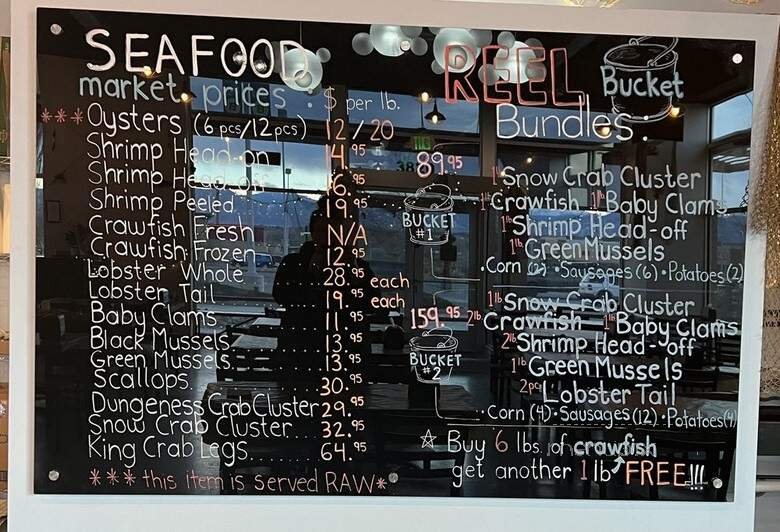 SEAFOOD
market prices : $ per lb.
***Oysters (6 pcs/12pcs) 12/20
Shrimp Head-on 14.95
Shrimp Head-off 16.95
Shrimp Peeled 19.95
Crawfish Fresh N/A
Crawfish Frozen 12.95
Lobster Whole 28.95 each
Lobster Tail 19.95 each
Baby Clams 11.95
Black Mussels 13.95
Green Mussels 13.95
Scallops 30.95
Dungeness Crab Cluster 29.95
Snow Crab Cluster 32.95
King Crab Legs 64.95
*** this item is served RAW*
REEL Bucket
Bundles:
89.95
BUCKET
#1
1lb Snow Crab Cluster
1lb Crawfish 1lb Baby Clams
1lb Shrimp Head-off
1lb Green Mussels
·Corn (2) ·Sausages (6) ·Potatoes (2)
159.95
BUCKET
#2
1lb Snow Crab Cluster
2lb Crawfish 1lb Baby Clams
2lb Shrimp Head-off
1lb Green Mussels
2pc Lobster Tail
·Corn (4) ·Sausages (12) ·Potatoes (4)
☆ Buy 6 lbs. of crawfish
get another 1 lb FREE!!!